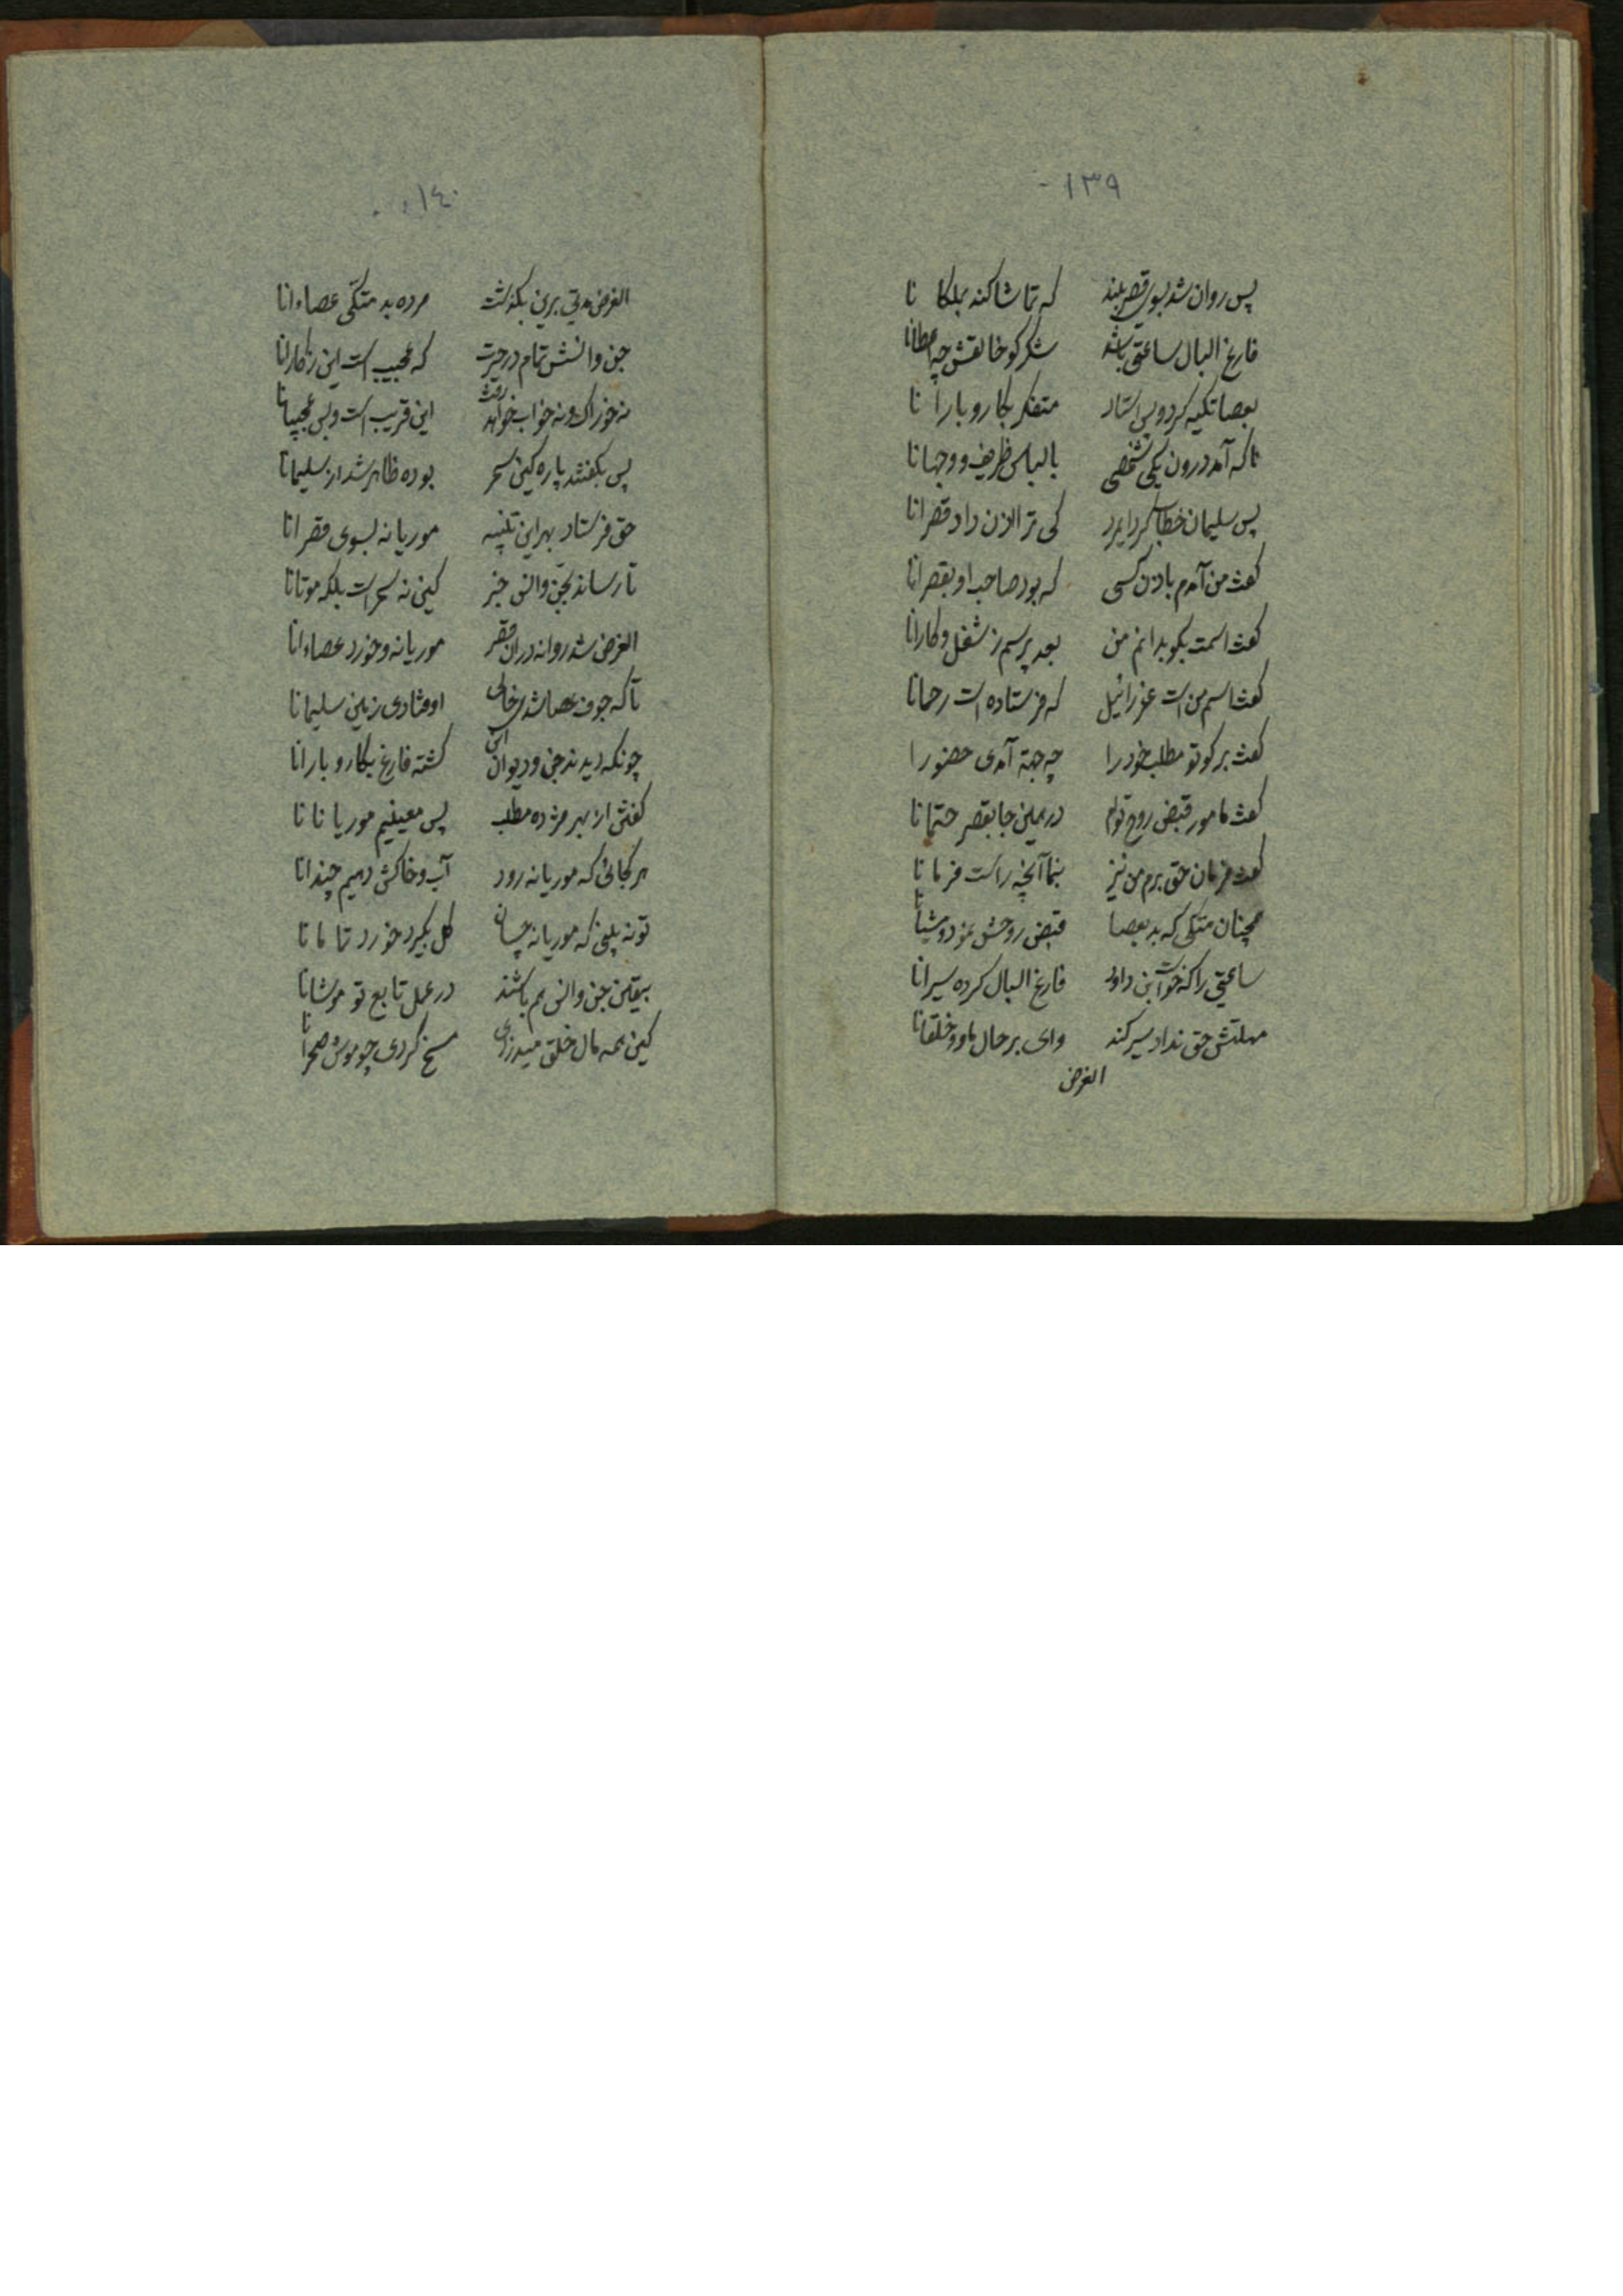 ۱۳۹
پس روان شد بسوی قصر بلند که تماشا کند بملکا نا
فارغ البال ساعتی باشد شکر کو خالقش چه اعطانا
بعصا تکیه کرد و بس استاد متفکر بکار و بارا نا
ناکه آمد درون یکی شخصی با لباس ظریف و وجهانا
پس سلیمان خطاب کرد ایمرد کی ترا اذن داد قصرانا
کفت من آمدم باذن کسی که بود صاحب او بقصرانا
کفت اسمت بکو بدانم من بعد پرسم ز شغل و کارانا
کفت اسم من است عزرائیل که فرستاده است رحمانا
کفت بر کو تو مطلب خود را چه جهة آمدی حضورا
کفت مامور قبض روح توام در همین جا بقصر حتمانا
کفت فرمان حق برم من نیز بنما آنچه راست فرمانا
همچنان متکی که بد بعصا قبض روحش نمود و مشیانا
ساعتی را که خواست ابن داود فارغ البال کرده سیرانا
مهلتش حق نداد سیر کند وای بر حال ما و خلقانا
الغرض
۱٤۰
الغرض مدتی برین بکذشت مرده بد متکی عصاءانا
جن و انسش تمام در حیرت که عجیب است این ز کارانا
نه خوراک و نه خواب خواهد رفت این قریب است و بس عجیبانا
پس بکفتند پاره کین سحر بوده ظاهر شد از سلیمانا
حق فرستاد بهر این تنبیه موریانه بسوی قصرانا
تا رساند بجن و انس خبر کین نه سحر است بلکه موتانا
الغرض شد روانه در آن قصر موریانه و خورد عصاءانا
تا که جوف عصا شدی خالی اوفتادی زمین سلیمانا
چونکه دیدند جن و دیوان این کشته فارغ بکار و بارانا
کفتش از بهر مژده مطلب پس معینیم موریا نا نا
هر کجائی که موریانه رود آب و خاکش دهیم چندانا
تو نه بینی که موریانه چسان کل بکیرد خورد تما ما نا
بیقین جن و انس هم باشند در عمل تابع تو موشانا
کین همه مال خلق میدزدی مسخ کردی چو موش صحرانا